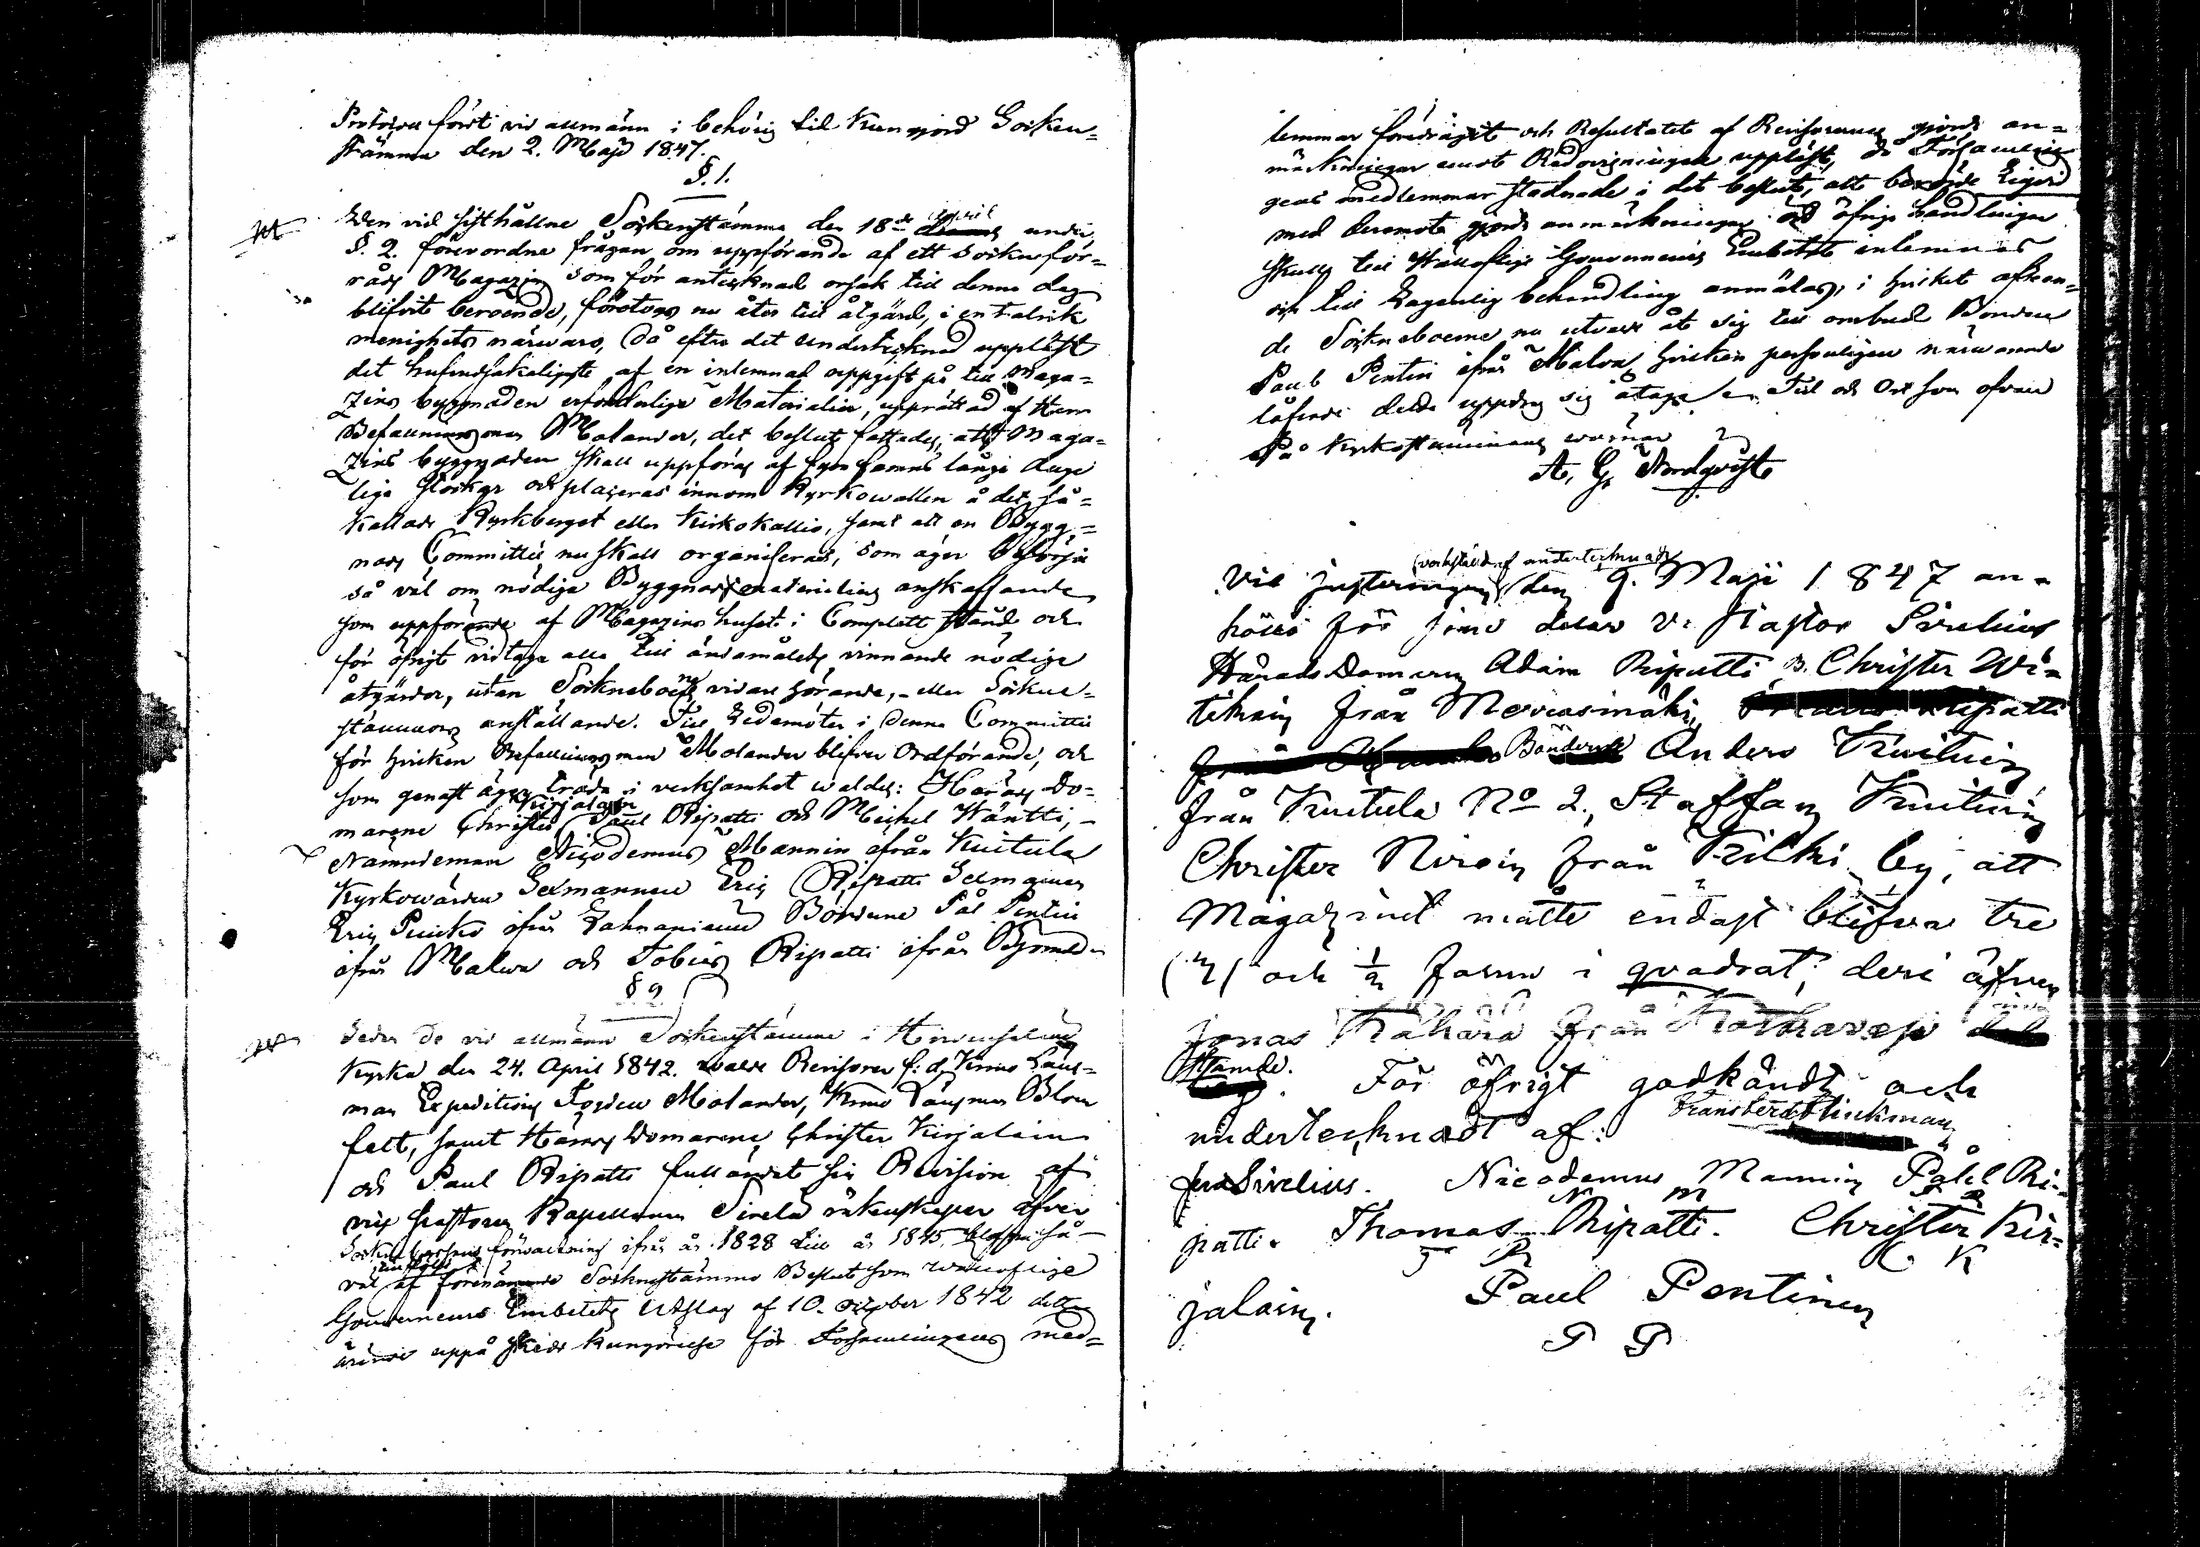 Protocoll fördt vid allmänn i behörig tid kungjord Socken-
stämma den 2. Maji 1847.
§. 1.
Den vid sisthållne Sockenstämma den 18de April under
§. 2. förevordne frågan om uppförande af ett Sockneför-
råds Magazin som för antecknad orsak till denna dag
blifvit beroende, företogs nu åter till åtgärd, i en talrik
menighets närwaro, Då efter det undertecknad uppläst
det hufvudsakeligaste af en inlemnad uppgift på till Maga-
zins byggnaden erforderlige Materialier, upprättad af Herr
Befallningsman Molander, det beslut fattades, att Maga-
zins byggnaden skall uppföras af fyra famns långe duge-
lige stockar och placeras innom Kyrkowallen å det så-
kallade Kyrkberget eller Kirkokallio, samt att en Bygg-
nads Committée nu skall organiseras, som äger besörja
så väl om nödiga Byggnads materialiers anskaffande
som uppförande af Magazins huset i Complett stånd och
för öfrigt vidtaga alla till ändamålets vinnande nödiga
åtgärder, utan Socknboerne vidare hörande, eller Sockne-
stämmors anställande. Till Ledamöter i denna Committée
för hvilken Befallningsman Molander blifver Ordförande, och
som genast äger träda i verksamhet valdes: Härads Do-
marene Christer Kirjalain Paul Ripatti och Michel Häntti,
Nämndeman Nicodemus Mannin ifrån Kuitula
Kyrkowärden Sexmannen Eric Ripatti Sexmannen
Eric Puicko ifrån Lahnaniemi Bönderne Pål Pentin
ifrån Malva och Tobias Ripatti ifrån
§ 2
Sedan de vid allmänn Sockenstämma i Hirvensalmi
Kyrka den 24. April 1842. valde Revisorer f: d. Krono Läns-
man Expeditions Fogden Molander, Krono Länsman Blom
felt, samt Härads Domarene Christer Kirjalain
och Paul Ripatti fulländat sin Revision af
vice Pastorn Kapellanen Sirelii räkenskaper öfver
förvaltning ifrån år 1828 till år 1845, så
väl till följe af förenämnde Socknestämmo Beslut som wällofliga
Gouverneurs Embetets Utslag af 10. october 1842 detta
ärende uppå skedd kungörelse för Församlingens med-
lemmar föredragit och Resultatet af Revisorernes gjorda an-
märkningar emot Redovisningen uppläst, då Församlin-
gens medlemmar stadnade i det beslut, att
med deremot gjorda anmärkningar och öfrige handlingar
skulle till Wällofliga Gouverneurs Embetet inlemnas
och till Lagenlig behandling anmälas, i hvilket afseen-
de Socknboerne nu utvalde åt sig till ombud Bonden
Paul Pentin ifrån Malva, hvilken personligen närwarande
låfvade detta uppdrag sig åtaga, Tid och Ort som ofvan
På Kyrkostämmans wägnar
A. G. Nordqvist
Vid justeringen (verkställd af undertecknade) den 9. Maji 1847 an-
höllo för sine delar V. Pastor Sirelius
HäradsDomaren Adam Ripatti, B. Christer Wi-
tikain från Merrasmäki,
Bönderne Anders Kuituin
från Kuitula No 2, Staffan Kuituin
Christer Niroin från Kilkki by, att
Magazinet måtte endast blifva tre
(3) och 1/2 famn i qvadrat; deri äfven
Jonas Kähärä från
stämde. För öfrigt godkändt och
undertecknadt af: Frans Ferd. Flinkman
Sirelius. Nicodemus Mannin Påhl Ri-
N M P R
patti. Thomas Ripatti. Christer Kir-
T R C K
jalain. Paul Pentinen
P P